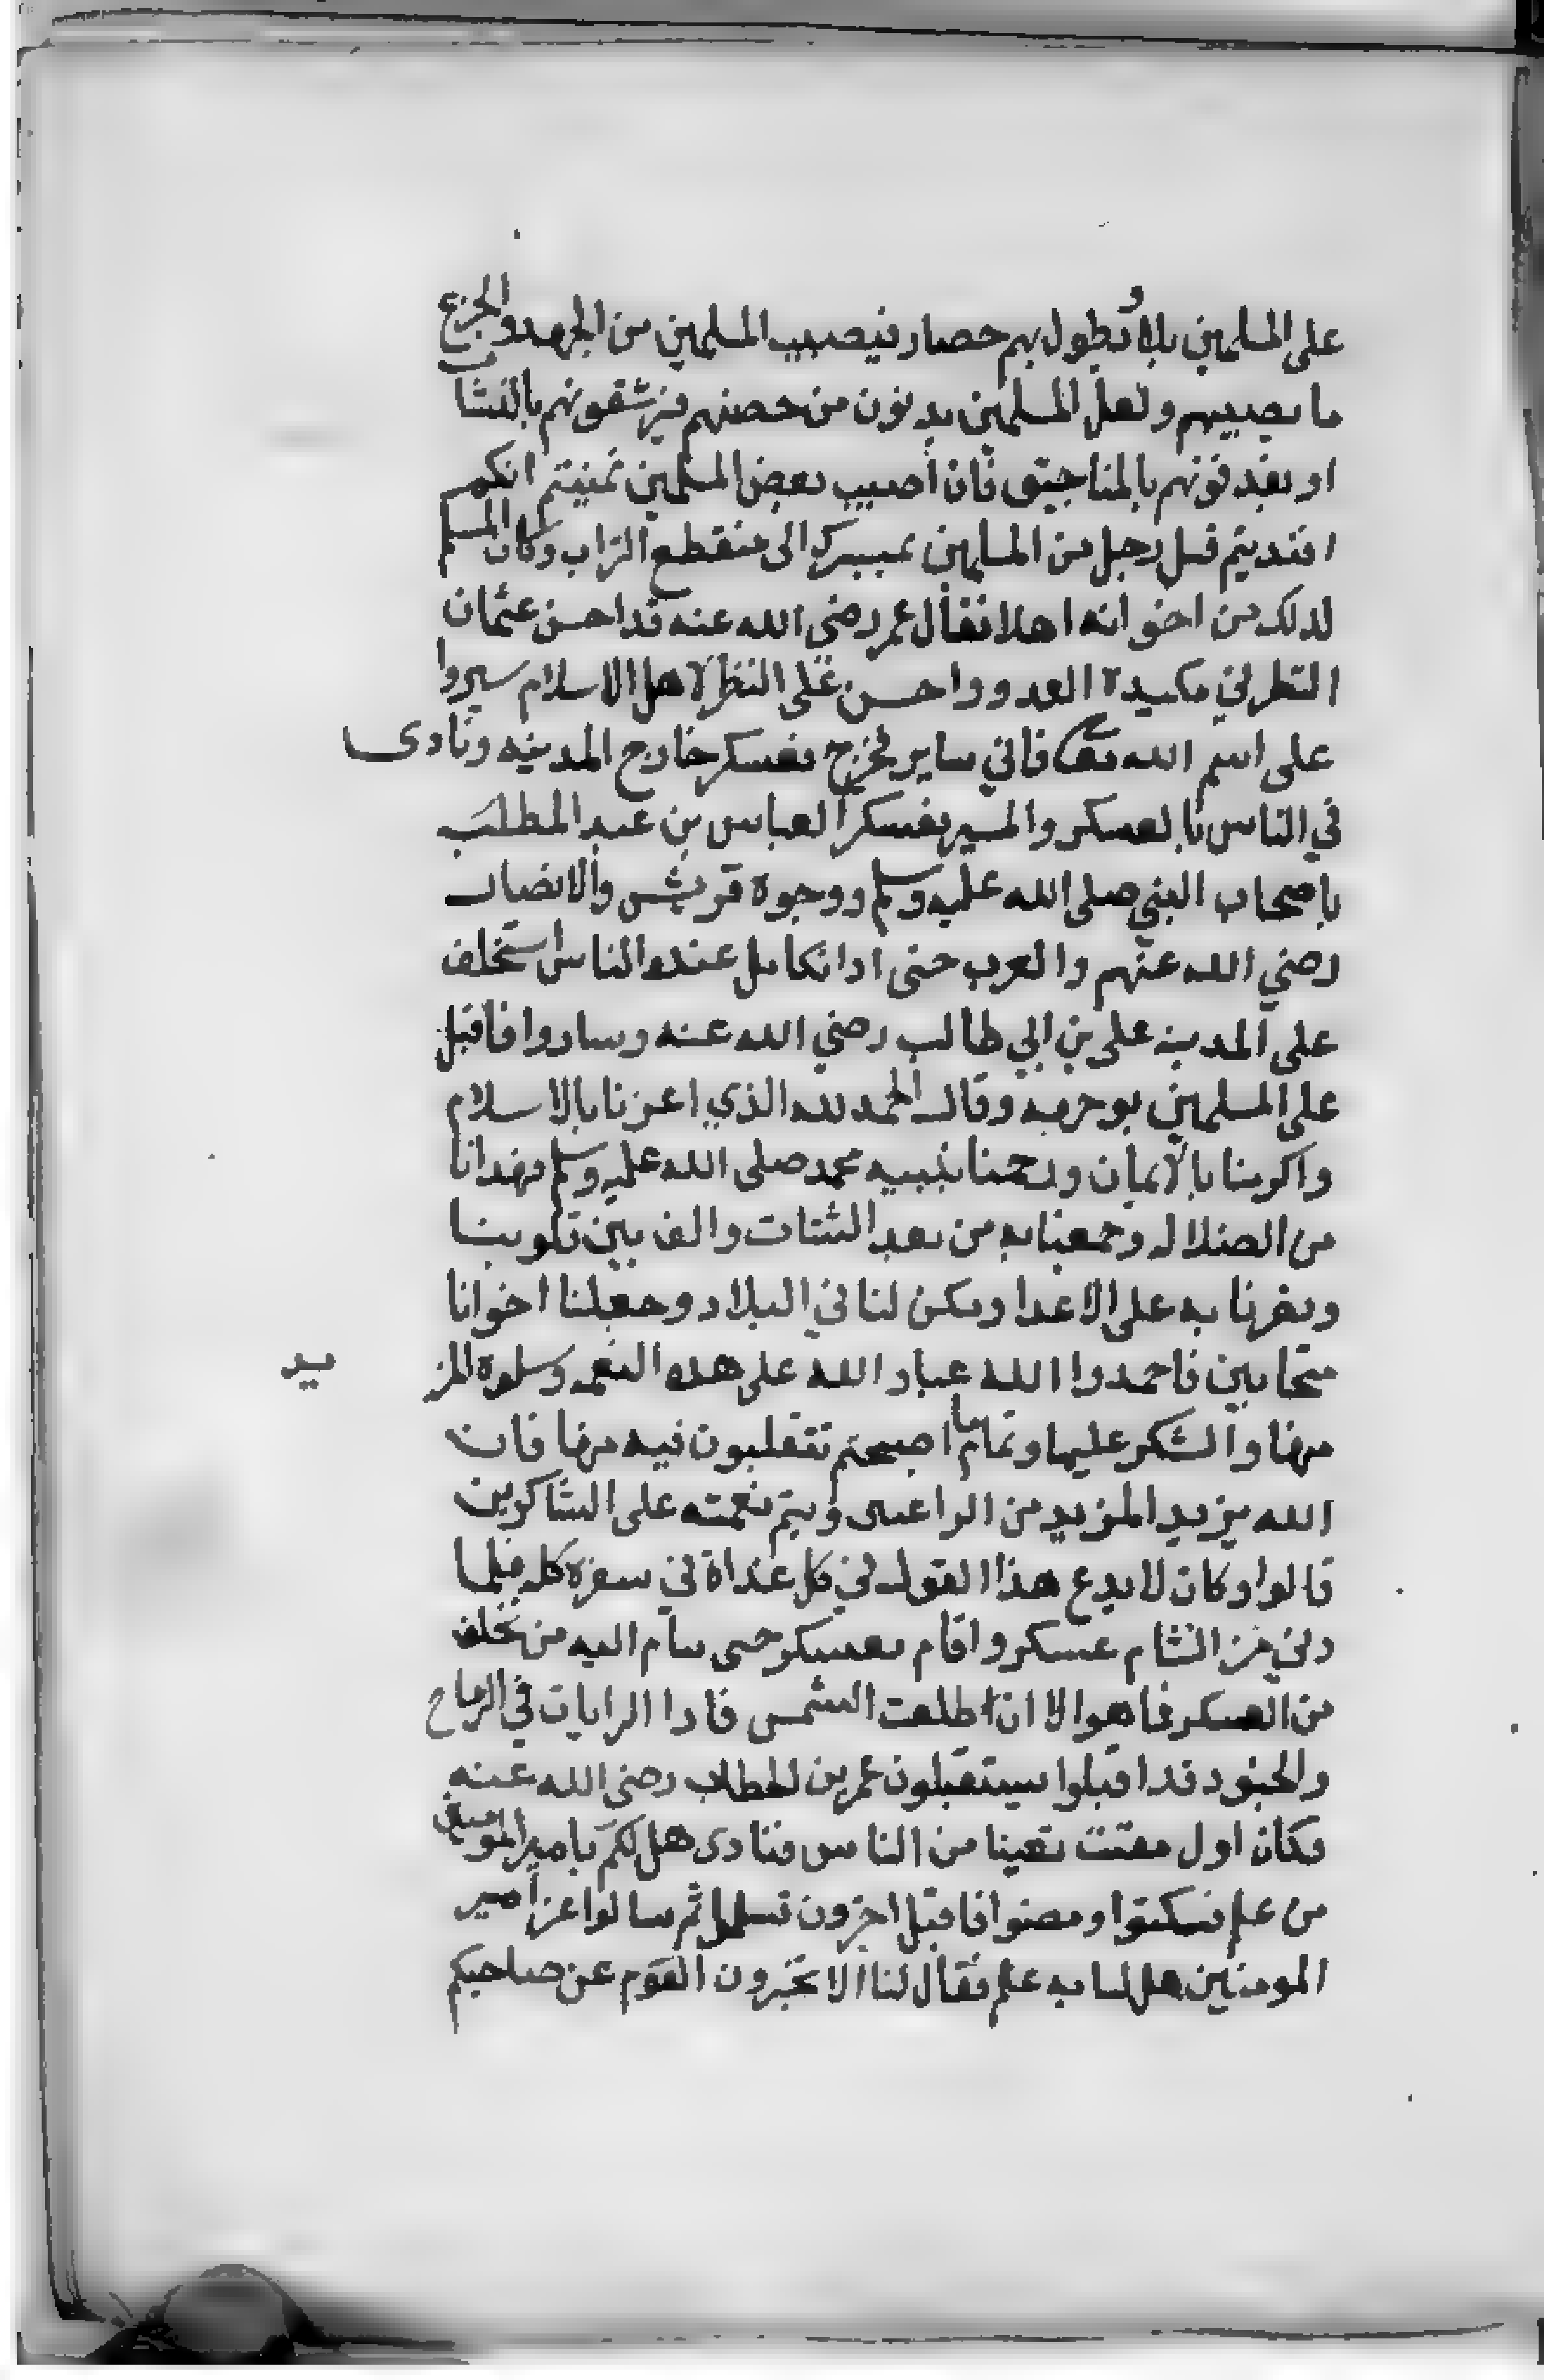 على المسلمين بلاؤ يطول بهم حصار فيصيب المسلمين من الجهد والجزع
ما يصيبهم ولعل المسلمين يدنون من حصنهم فيرشقونهم بالنشاب
او يقذفونهم بالمناجيق فان أصيب بعض المسلمين تمنيتم انكم
افتديتم قتل رجل من المسلمين بمسيركم الى منقطع التراب وكان المسلم
لذلك من اخوانه اهلا فقال عمر رضي الله عنه قد احسن عثمان
النظر في مكيدة العدو واحسن على النظر لاهل الاسلام سيروا
على اسم الله تعالى فاني ساير فخرج فعسكر خارج المدينه ونادى
في الناس بالعسكر والمسير فعسكر العباس بن عبد المطلب
باصحاب النبي صلى الله عليه وسلم ووجوه قريش والانصار
رضي الله عنهم والعرب حتى اذا تكامل عنده الناس استخلف
على المدينه على بن ابي طالب رضي الله عنه وساروا فاقبل
على المسلمين بوجهه وقال الحمد لله الذي اعزنا بالاسلام
واكرمنا بالايمان ورحمنا بنبيه محمد صلى الله عليه وسلم فهدانا
من الضلاله وجمعنا به من بعد الشتات والف بين قلوبنا
ونصرنا به على الاعدا ومكن لنا في البلاد وجعلنا اخوانا
متحابين فاحمدوا الله عباد الله على هذه النعمه وسلوه المز يد
منها والشكر عليها وتمام ما اصبحتم تتقلبون فيه منها فان
الله يزيد المزيد من الراغبين ويتم نعمته على الشاكرين
قالوا وكان لا يدع هذا القول في كل غداة في سفره كله فلما
دنى من الشام عسكر واقام بعسكر حتى تتام اليه من تخلف
من العسكر فما هو الا ان طلعت الشمس فاذا الرايات في الرماح
والجنود قد اقبلوا يستقبلون عمر بن الخطاب رضي الله عنه
فكان اول من الناس فنادى هل لكم بامير المومنين
من علم فسكتوا ومضوا فاقبل اخرون ثم سالوا عن امير
المومنين هل لنا به علم فقال لنا الا تخبرون القوم عن صاحبكم